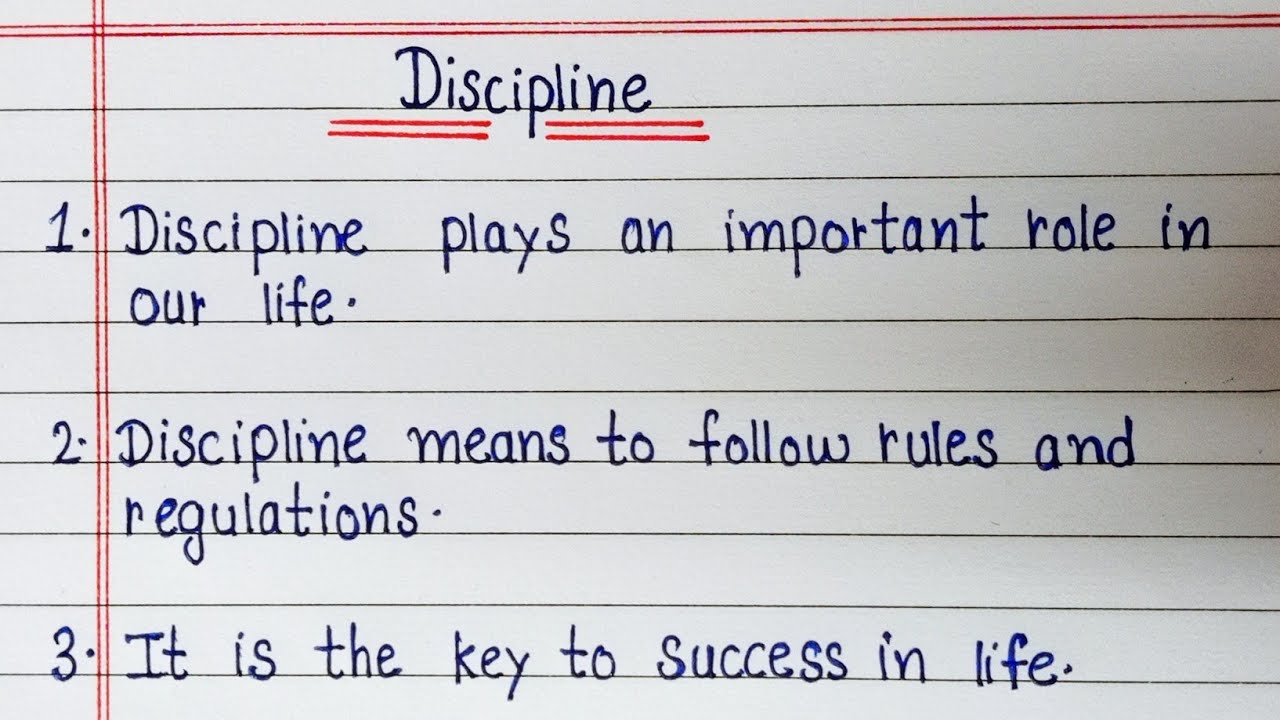 Discipline
1. Discipline plays an important role in
our life.
2. Discipline means to follow rules and
regulations.
3. It is the key to success in life.